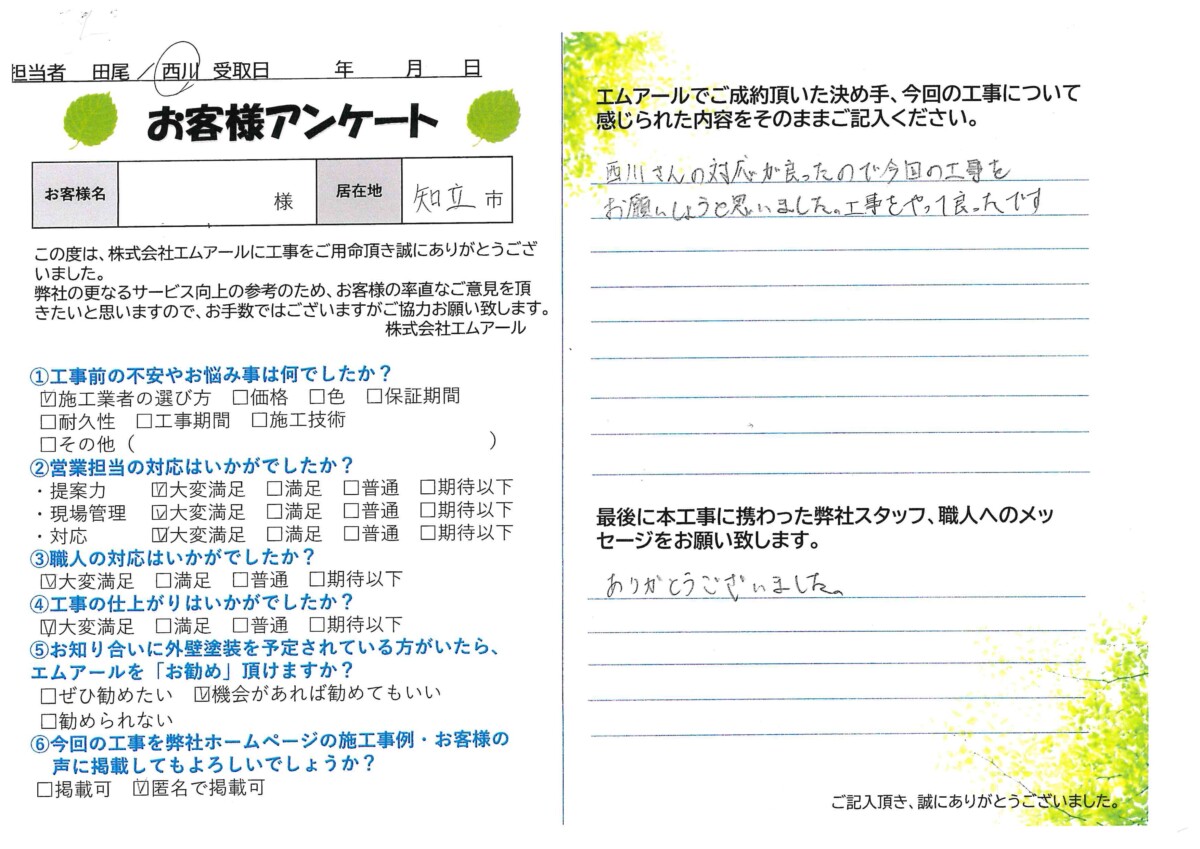 担当者 田尾／西川 受取日 年 月 日
お客様アンケート
お客様名 様 居在地 知立 市
この度は、株式会社エムアールに工事をご用命頂き誠にありがとうござ
いました。
弊社の更なるサービス向上の参考のため、お客様の率直なご意見を頂
きたいと思いますので、お手数ではございますがご協力お願い致します。
株式会社エムアール
①工事前の不安やお悩み事は何でしたか？
☑施工業者の選び方 □価格 □色 □保証期間
□耐久性 □工事期間 □施工技術
□その他（ ）
②営業担当の対応はいかがでしたか？
・提案力 ☑大変満足 □満足 □普通 □期待以下
・現場管理 ☑大変満足 □満足 □普通 □期待以下
・対応 ☑大変満足 □満足 □普通 □期待以下
③職人の対応はいかがでしたか？
☑大変満足 □満足 □普通 □期待以下
④工事の仕上がりはいかがでしたか？
☑大変満足 □満足 □普通 □期待以下
⑤お知り合いに外壁塗装を予定されている方がいたら、
エムアールを「お勧め」頂けますか？
□ぜひ勧めたい ☑機会があれば勧めてもいい
□勧められない
⑥今回の工事を弊社ホームページの施工事例・お客様の
声に掲載してもよろしいでしょうか？
□掲載可 ☑匿名で掲載可
エムアールでご成約頂いた決め手、今回の工事について
感じられた内容をそのままご記入ください。
西川さんの対応が良ったので今回の工事を
お願いしようと思いました。工事をやって良ったです
最後に本工事に携わった弊社スタッフ、職人へのメッ
セージをお願い致します。
ありがとうございました。
ご記入頂き、誠にありがとうございました。